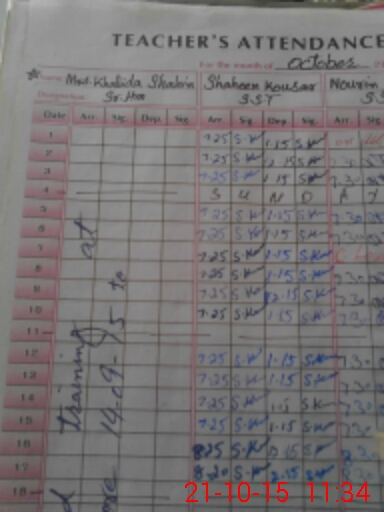 TEACHER'S ATTENDANCE
For the month of October
Name Mrs. Khalida Shahin Shaheen Kousar Nourin
Designation Sr. Hm S.S.T
Date Arr. Sig. Dep. Sig. Arr. Sig. Dep. Sig. Arr. Sig
1 7.25 S.K 1.15 S.K
2 7.25 S.K 12.15 S.K 7.30
3 7.25 S.K 1.15 S.K 7.30
4 S U N D A Y
5 7.25 S.K 1.15 S.K 7.30
6 7.25 S.K 1.15 S.K 7.30
7 7.25 S.K 1.15 S.K
8 7.25 S.K 1.15 S.K 7.30
9 7.25 S.K 12.15 S.K 7.30
10 7.25 S.K 1.15 S.K 7.30
11
12 7.25 S.K 1.15 S.K 7.30
13 7.25 S.K 1.15 S.K 7.30
14 7.25 S.K 1.15 S.K 7.30
15 7.25 S.K 1.15 S.K 7.30
16 8.25 S.K 12.15 S.K 8.30
17 8.20 S.K 2.15 S.K
18
training at
14.09.15 to
21-10-15 11:34